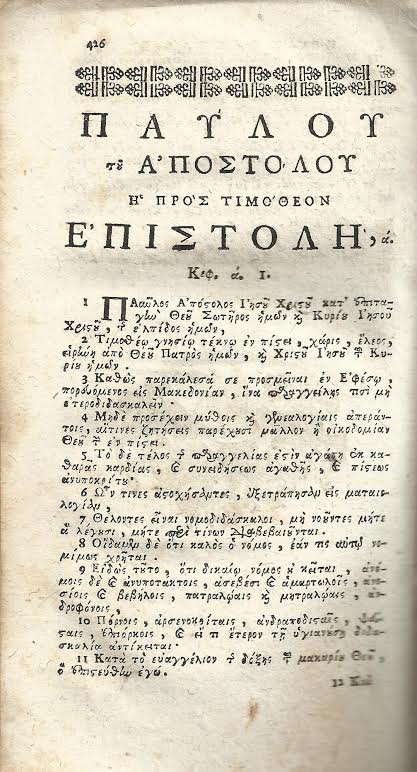 426
ΠΑΥ͂ΛΟΥ
τοῦ ἈΠΟΣΤΟΛΟΥ
Ἡ ΠΡΟῸΣ ΤΙΜΟΘΕΟΝ
ἘΠΙΣΤΟΛΗ, ά.
Κεφ. ά. 1.
1 ΠΑαῦλος Ἀπόστολος Ἰησοῦ Χριστοῦ κατ' ἐπιτα-
γὴν Θεοῦ Σωτῆρος ἡμῶν, καὶ Κυρίου Ἰησοῦ
Χριστοῦ, τῆς ἐλπίδος ἡμῶν,
2 Τιμοθέῳ γνησίῳ τέκνῳ ἐν πίστει, χάρις, ἔλεος,
εἰρήνη ἀπὸ Θεοῦ Πατρὸς ἡμῶν, καὶ Χριστοῦ Ἰησοῦ τοῦ Κυ-
ρίου ἡμῶν.
3 Καθὼς παρεκάλεσά σε προσμεῖναι ἐν Ἐφέσῳ,
πορευόμενος εἰς Μακεδονίαν, ἵνα παραγγείλῃς τισὶ μὴ
ἑτεροδιδασκαλεῖν·
4 Μηδὲ προσέχειν μύθοις καὶ γενεαλογίαις ἀπεράν-
τοις, αἵτινες ζητήσεις παρέχουσι μᾶλλον ἢ οἰκοδομίαν
Θεοῦ τὴν ἐν πίστει.
5 Τὸ δὲ τέλος τῆς παραγγελίας ἐστὶν ἀγάπη ἐκ κα-
θαρᾶς καρδίας, καὶ συνειδήσεως ἀγαθῆς, καὶ πίστεως
ἀνυποκρίτου·
6 Ὧν τινες ἀστοχήσαντες, ἐξετράπησαν εἰς ματαιο-
λογίαν,
7 Θέλοντες εἶναι νομοδιδάσκαλοι, μὴ νοοῦντες μήτε
ἃ λέγουσι, μήτε περὶ τίνων διαβεβαιοῦνται.
8 Οἴδαμεν δὲ ὅτι καλὸς ὁ νόμος, ἐάν τις αὐτῷ νο-
μίμως χρῆται.
9 Εἰδὼς τοῦτο, ὅτι δικαίῳ νόμος οὐ κεῖται, ἀνό-
μοις δὲ καὶ ἀνυποτάκτοις, ἀσεβέσι καὶ ἁμαρτωλοῖς, ἀνο-
σίοις καὶ βεβήλοις, πατραλῴαις καὶ μητραλῴαις, ἀν-
δροφόνοις,
10 Πόρνοις, ἀρσενοκοίταις, ἀνδραποδισταῖς, ψεύ-
σταις, ἐπιόρκοις, καὶ εἴ τι ἕτερον τῇ ὑγιαινούσῃ διδα-
σκαλίᾳ ἀντίκειται·
11 Κατὰ τὸ εὐαγγέλιον τῆς δόξης τοῦ μακαρίου Θεοῦ,
ὃ ἐπιστεύθην ἐγώ.
12 Καὶ